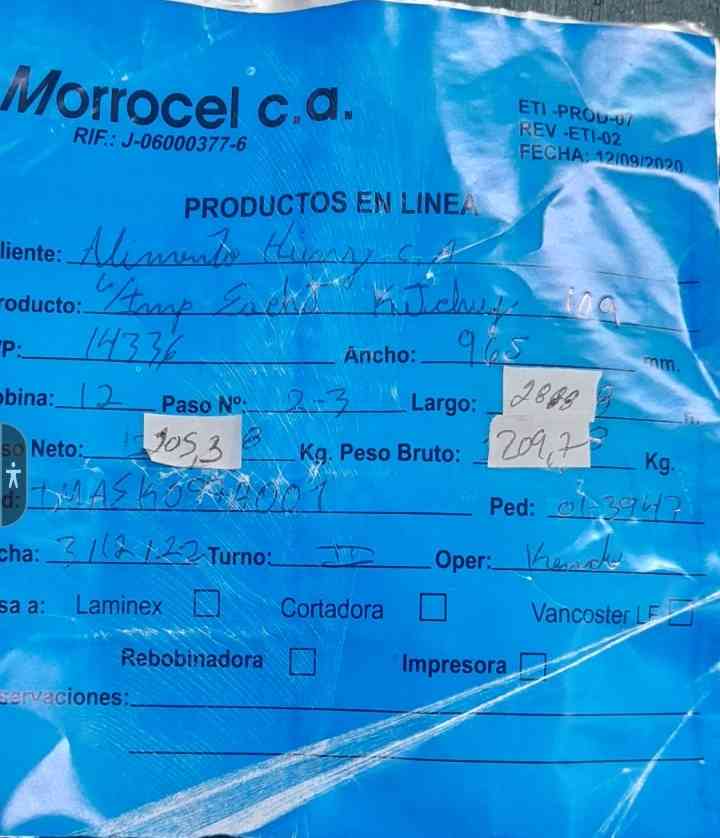 Morrocel c.a.
RIF.: J-06000377-6
ETI -PROD-07
REV -ETI-02
FECHA: 12/09/2020
PRODUCTOS EN LINEA
liente: Alimento Humny C.A
roducto:
P: 14336 Ancho: 965 mm.
obina: 12 Paso Nº: 2-3 Largo:
so Neto: 205,3 Kg. Peso Bruto: 209,7 Kg.
d: Ped: 01-3947
cha: 3/12/22 Turno: II Oper:
sa a: Laminex Cortadora Vancoster LF
Rebobinadora Impresora
servaciones: